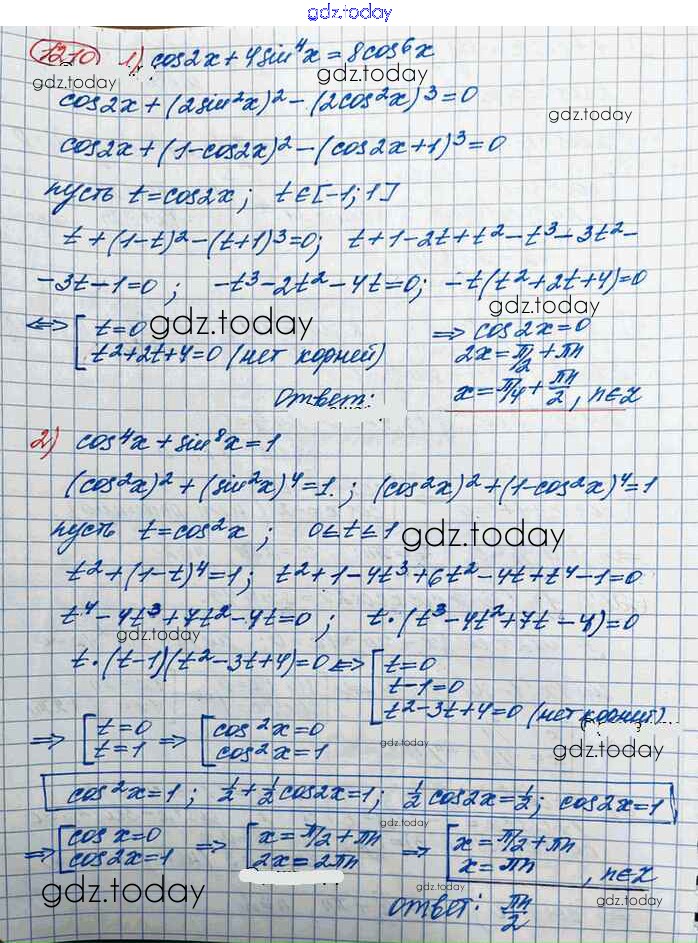 gdz.today
12.10 1) cos2x + 4sin⁴x = 8cos⁶x
gdz.today
cos2x + (2sin²x)² - (2cos²x)³ = 0
gdz.today
cos2x + (1-cos2x)² - (cos2x+1)³ = 0
пусть t = cos2x ; t ∈ [-1; 1]
t + (1-t)² - (t+1)³ = 0; t + 1 - 2t + t² - t³ - 3t² -
- 3t - 1 = 0 ; -t³ - 2t² - 4t = 0; -t(t² + 2t + 4) = 0
gdz.today
⇔ [ t = 0 ⇒ cos2x = 0
gdz.today
t² + 2t + 4 = 0 (нет корней) 2x = π/2 + πn
Ответ: x = π/4 + πn/2 , n ∈ Z
2) cos⁴x + sin⁸x = 1
(cos²x)² + (sin²x)⁴ = 1. ; (cos²x)² + (1-cos²x)⁴ = 1
пусть t = cos²x ; 0 ≤ t ≤ 1
gdz.today
t² + (1-t)⁴ = 1; t² + 1 - 4t³ + 6t² - 4t + t⁴ - 1 = 0
t⁴ - 4t³ + 7t² - 4t = 0 ; t·(t³ - 4t² + 7t - 4) = 0
gdz.today
gdz.today
t·(t-1)(t² - 3t + 4) = 0 ⇔ [ t = 0
t - 1 = 0
t² - 3t + 4 = 0 (нет корней)
⇒ [ t = 0 ⇒ [ cos²x = 0
t = 1 cos²x = 1
gdz.today
gdz.today
cos²x = 1 ; 1/2 + 1/2 cos2x = 1; 1/2 cos2x = 1/2; cos2x = 1
gdz.today
⇒ [ cos x = 0 ⇒ [ x = π/2 + πn ⇒ [ x = π/2 + πn
cos2x = 1 2x = 2πn x = πn , n ∈ Z
gdz.today
gdz.today
gdz.today
Ответ: πn/2